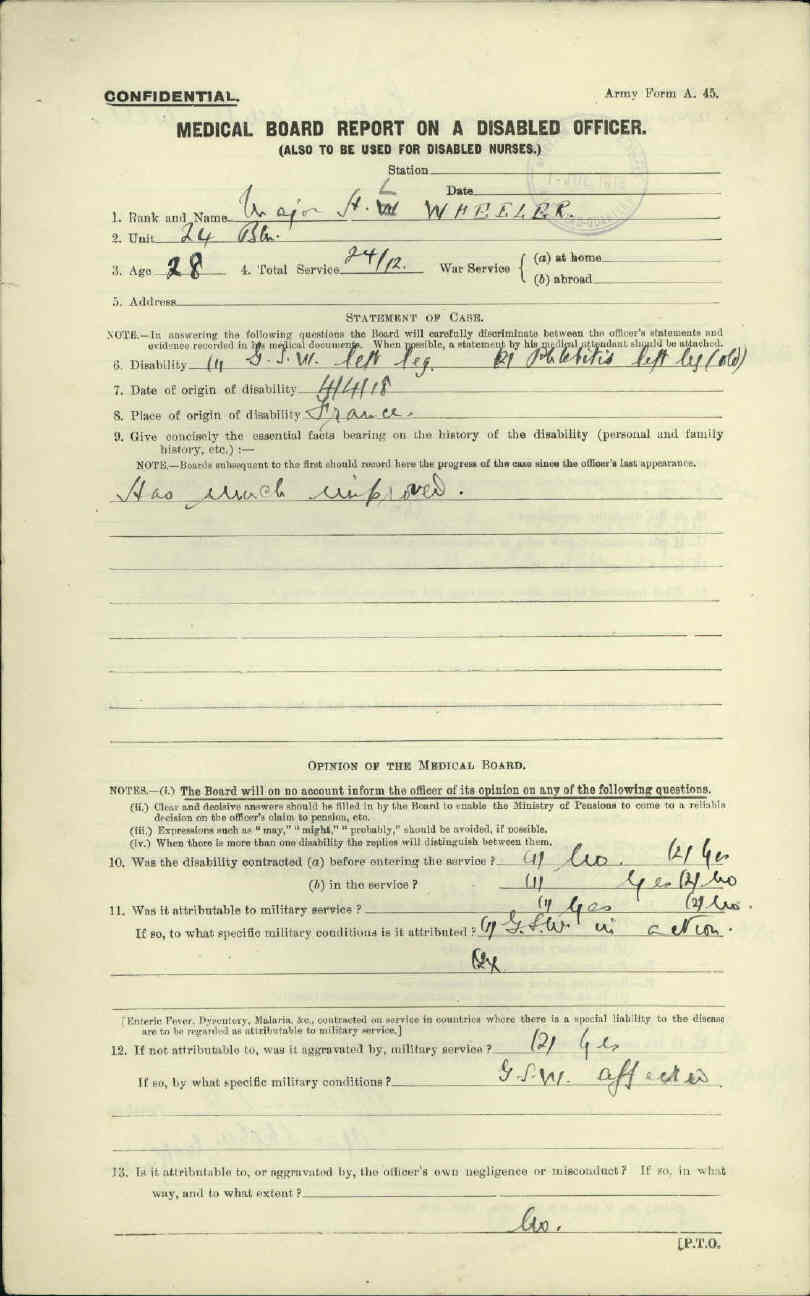 CONFIDENTIAL.
Army Form A. 45.
MEDICAL BOARD REPORT ON A DISABLED OFFICER.
(ALSO TO BE USED FOR DISABLED NURSES.)
Station
Date
1. Rank and Name Major H. L WHEELER.
2. Unit 24 Bn.
3. Age 28 4. Total Service 24/12. War Service { (a) at home
(b) abroad
5. Address
STATEMENT OF CASE.
NOTE.—In answering the following questions the Board will carefully discriminate between the officer's statements and
evidence recorded in his medical documents. When possible, a statement by his medical attendant should be attached.
6. Disability (1) G.S.W. left leg. (2) Phlebitis left leg (old)
7. Date of origin of disability 4/4/18
8. Place of origin of disability France.
9. Give concisely the essential facts bearing on the history of the disability (personal and family
history, etc.) :—
NOTE.—Boards subsequent to the first should record here the progress of the case since the officer's last appearance.
Has much improved.
OPINION OF THE MEDICAL BOARD.
NOTES.—(i.) The Board will on no account inform the officer of its opinion on any of the following questions.
(ii.) Clear and decisive answers should be filled in by the Board to enable the Ministry of Pensions to come to a reliable
decision on the officer's claim to pension, etc.
(iii.) Expressions such as "may," "might," "probably," should be avoided, if possible.
(iv.) When there is more than one disability the replies will distinguish between them.
10. Was the disability contracted (a) before entering the service ? (1) No. (2) Yes
(b) in the service ? (1) Yes (2) No
11. Was it attributable to military service ? (1) Yes (2) No.
If so, to what specific military conditions is it attributed ? (1) G.S.W. in action.
[Enteric Fever, Dysentery, Malaria, &c., contracted on service in countries where there is a special liability to the disease
are to be regarded as attributable to military service.]
12. If not attributable to, was it aggravated by, military service ? (2) Yes
If so, by what specific military conditions ? G.S.W. affected
13. Is it attributable to, or aggravated by, the officer's own negligence or misconduct ? If so, in what
way, and to what extent ?
No.
[P.T.O.